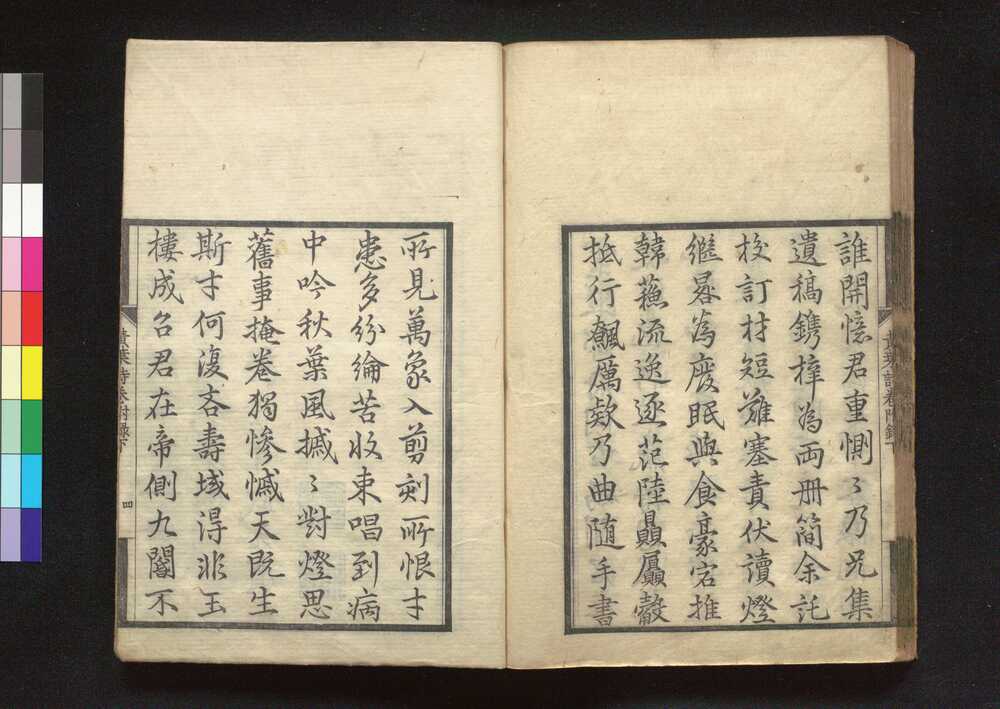 誰開憶君重惻〻乃兄集
遺稿鐫梓為両冊簡余託
校訂材短難塞責伏讀燈
継晷為廢眠與食豪宕推
韓蘓流逸逐范陸贔屭轂
抵行飆厲欵乃曲隨手書
所見萬象入剪刻所恨才
患多紛綸苦收束唱到病
中吟秋葉風摵〻對燈思
舊事掩巻獨慘慽天既生
斯才何復吝壽域得非玉
樓成召君在帝側九閽不
四